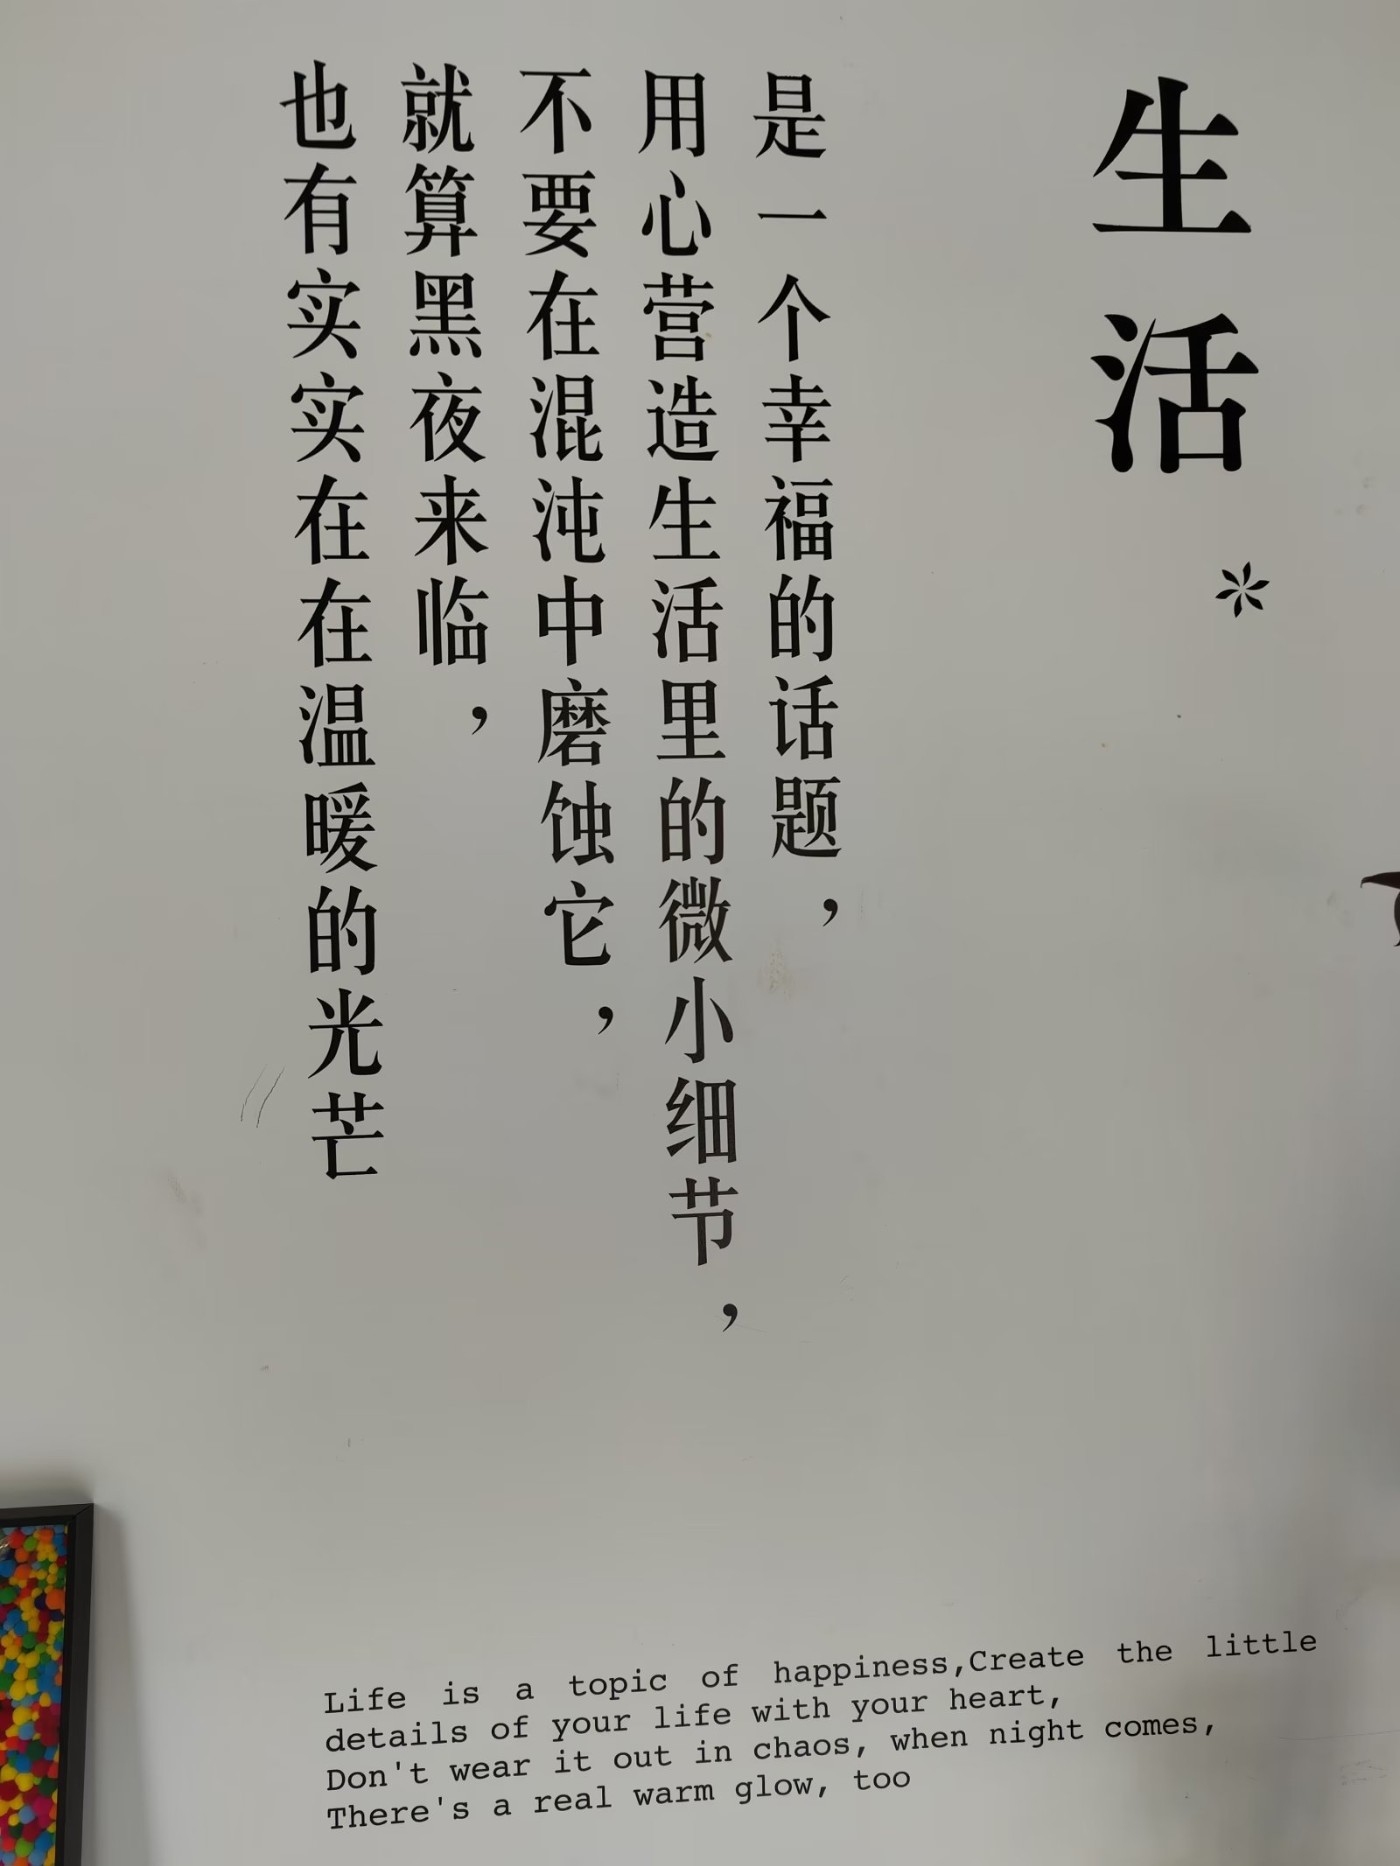 生活
*
是一个幸福的话题，
用心营造生活里的微小细节，
不要在混沌中磨蚀它，
就算黑夜来临，
也有实实在在温暖的光芒
Life is a topic of happiness,Create the little
details of your life with your heart,
Don't wear it out in chaos, when night comes,
There's a real warm glow, too